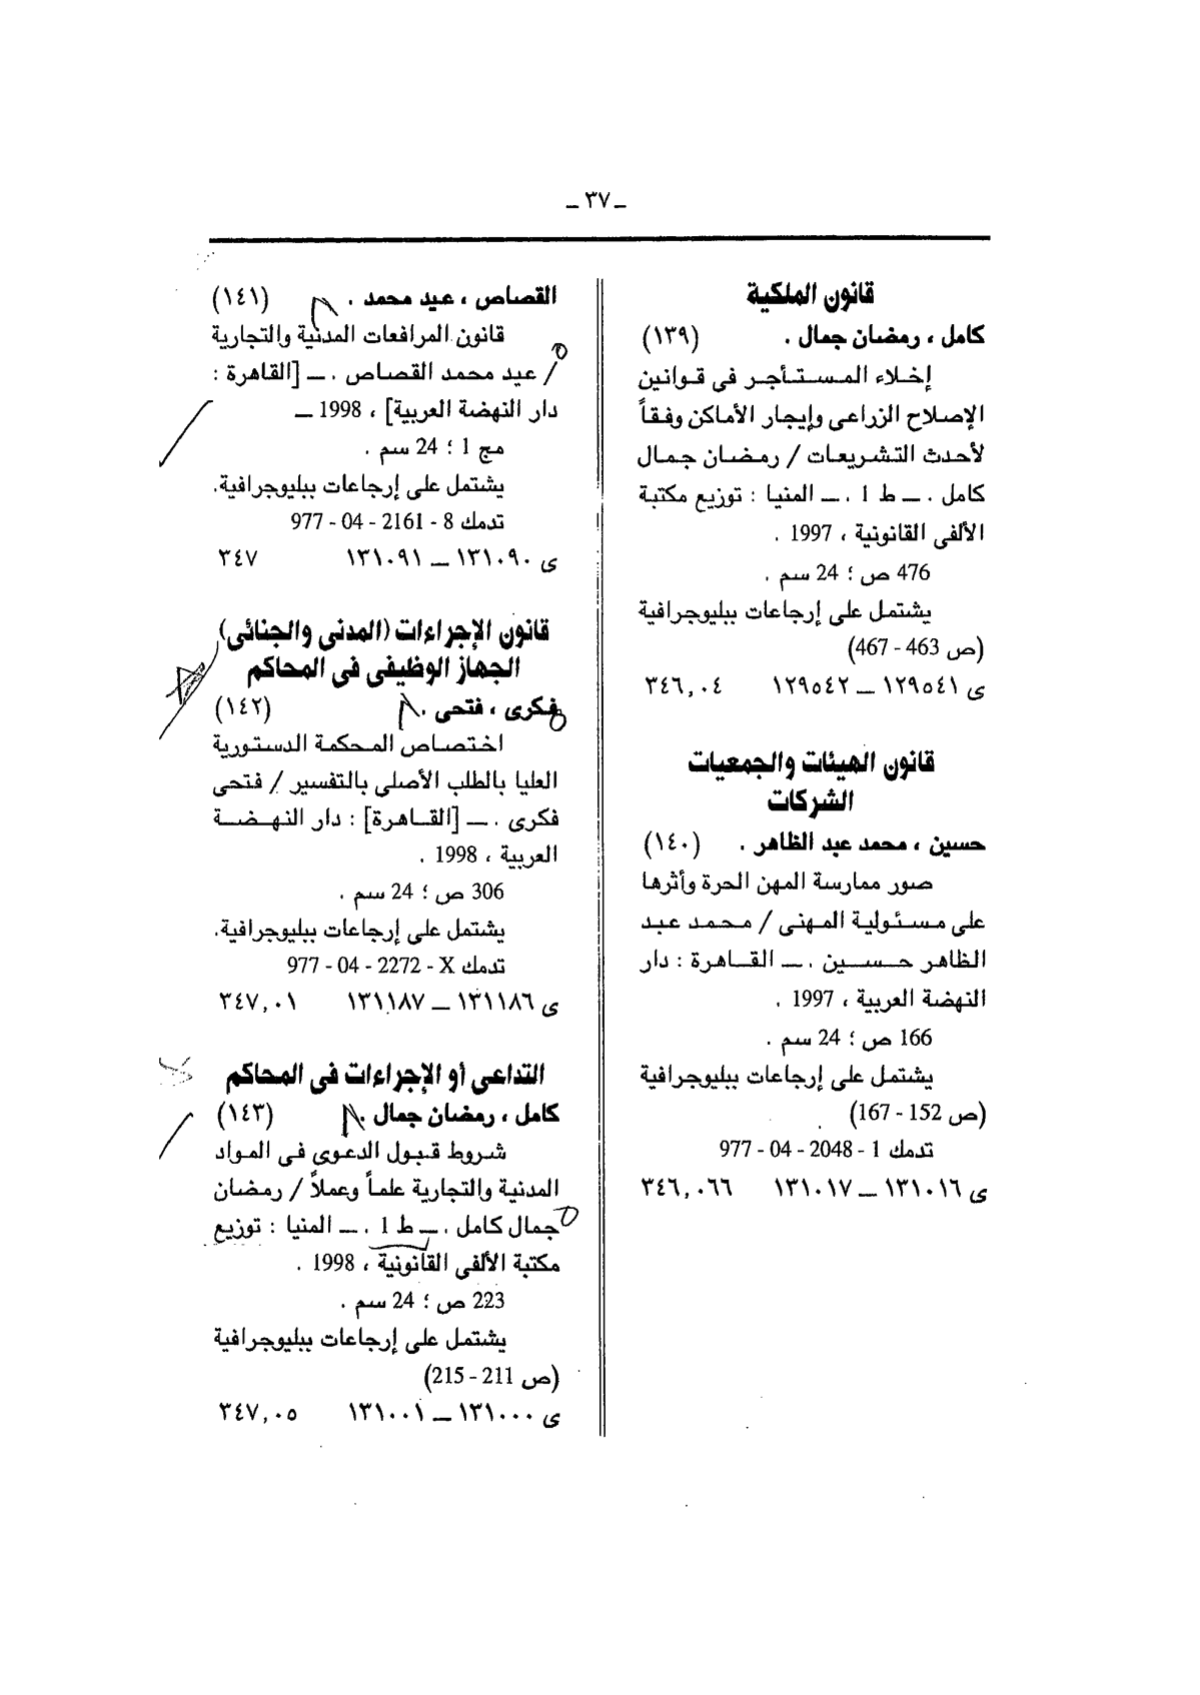 ـ ٣٧ ـ
قانون الملكية
كامل ، رمضان جمال . (١٣٩)
إخلاء المستأجر فى قوانين
الإصلاح الزراعى وإيجار الأماكن وفقاً
لأحدث التشريعات / رمضان جمال
كامل . ـ ط 1 . ـ المنيا : توزيع مكتبة
الألفى القانونية ، 1997 .
476 ص ؛ 24 سم .
يشتمل على إرجاعات ببليوجرافية
(ص 463 - 467)
ى ١٢٩٥٤١ ـ ١٢٩٥٤٢ ٣٤٦,٠٤
قانون الهيئات والجمعيات
الشركات
حسين ، محمد عبد الظاهر . (١٤٠)
صور ممارسة المهن الحرة وأثرها
على مسئولية المهنى / محمد عبد
الظاهر حسين . ـ القاهرة : دار
النهضة العربية ، 1997 .
166 ص ؛ 24 سم .
يشتمل على إرجاعات ببليوجرافية
(ص 152 - 167)
تدمك 1 - 2048 - 04 - 977
ى ١٣١٠١٦ ـ ١٣١٠١٧ ٣٤٦,٠٦٦
القصاص ، عيد محمد . (١٤١)
قانون المرافعات المدنية والتجارية
/ عيد محمد القصاص . ـ [القاهرة :
دار النهضة العربية] ، 1998 ـ
مج 1 ؛ 24 سم .
يشتمل على إرجاعات ببليوجرافية.
تدمك 8 - 2161 - 04 - 977
ى ١٣١٠٩٠ ـ ١٣١٠٩١ ٣٤٧
قانون الإجراءات (المدنى والجنائى)
الجهاز الوظيفى فى المحاكم
فكرى ، فتحى . (١٤٢)
اختصاص المحكمة الدستورية
العليا بالطلب الأصلى بالتفسير / فتحى
فكرى . ـ [القاهرة] : دار النهضة
العربية ، 1998 .
306 ص ؛ 24 سم .
يشتمل على إرجاعات ببليوجرافية.
تدمك X - 2272 - 04 - 977
ى ١٣١١٨٦ ـ ١٣١١٨٧ ٣٤٧,٠١
التداعى أو الإجراءات فى المحاكم
كامل ، رمضان جمال . (١٤٣)
شروط قبول الدعوى فى المواد
المدنية والتجارية علماً وعملاً / رمضان
جمال كامل . ـ ط 1 . ـ المنيا : توزيع
مكتبة الألفى القانونية ، 1998 .
223 ص ؛ 24 سم .
يشتمل على إرجاعات ببليوجرافية
(ص 211 - 215)
ى ١٣١٠٠٠ ـ ١٣١٠٠١ ٣٤٧,٠٥